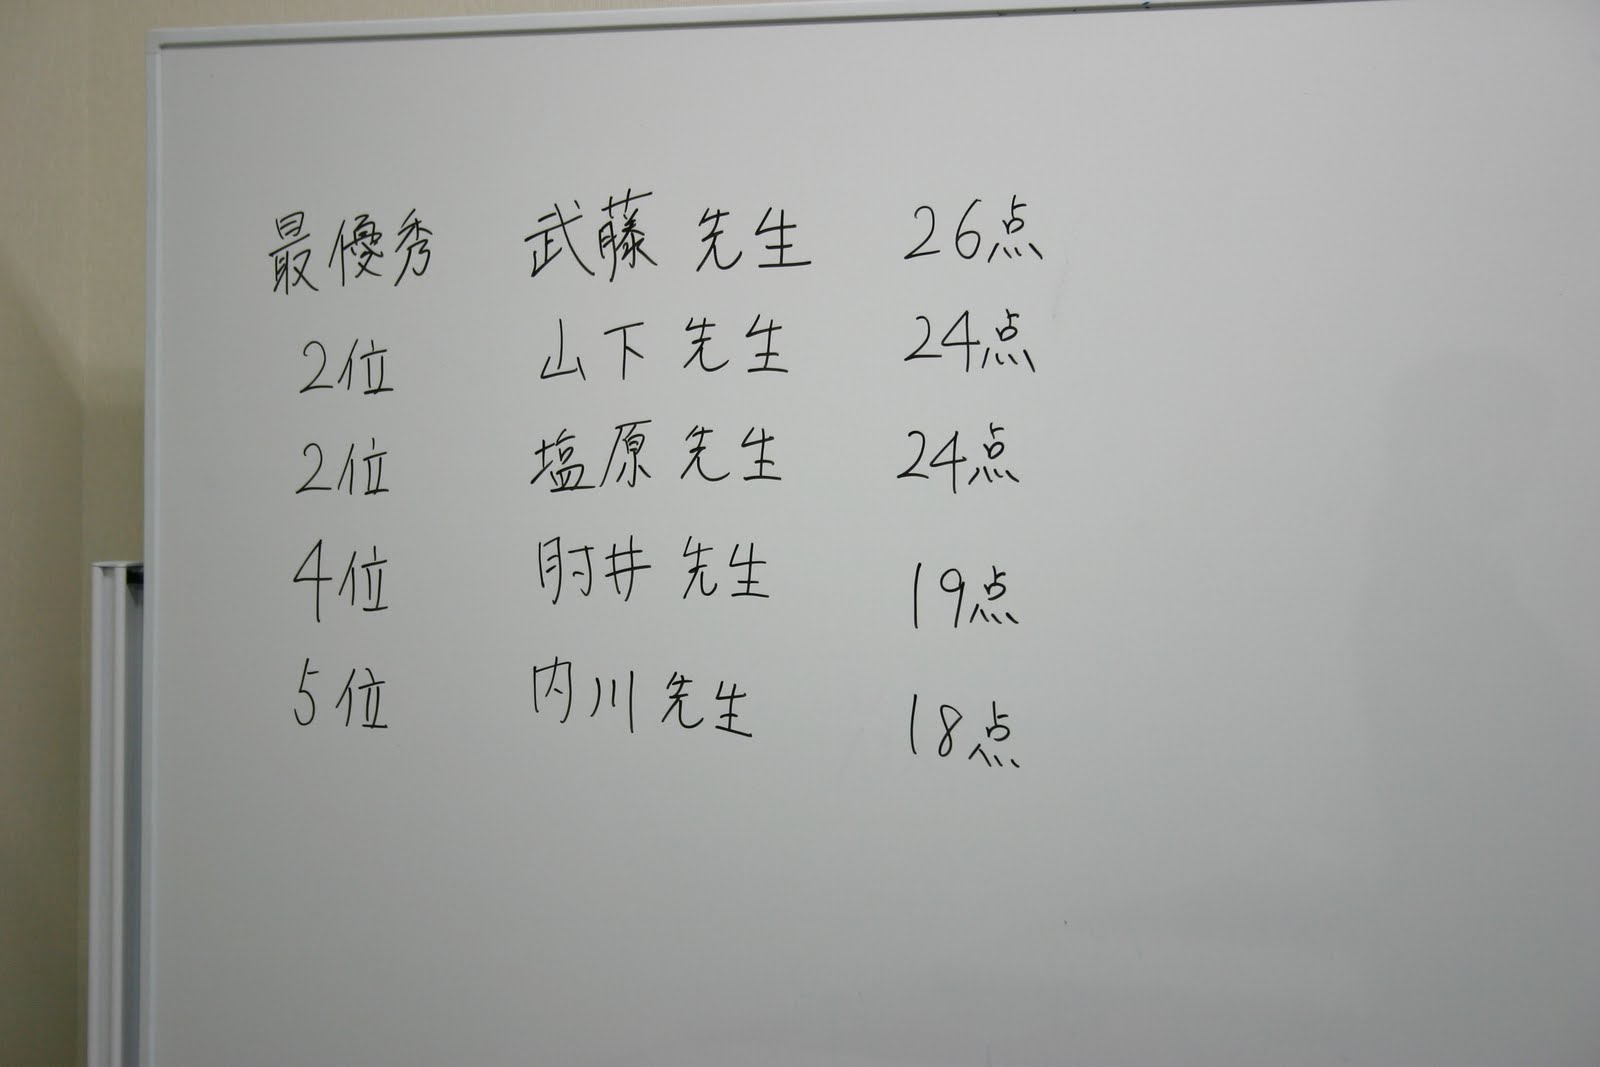 最優秀 武藤 先生 26点
2位 山下 先生 24点
2位 塩原 先生 24点
4位 肘井 先生 19点
5位 内川 先生 18点